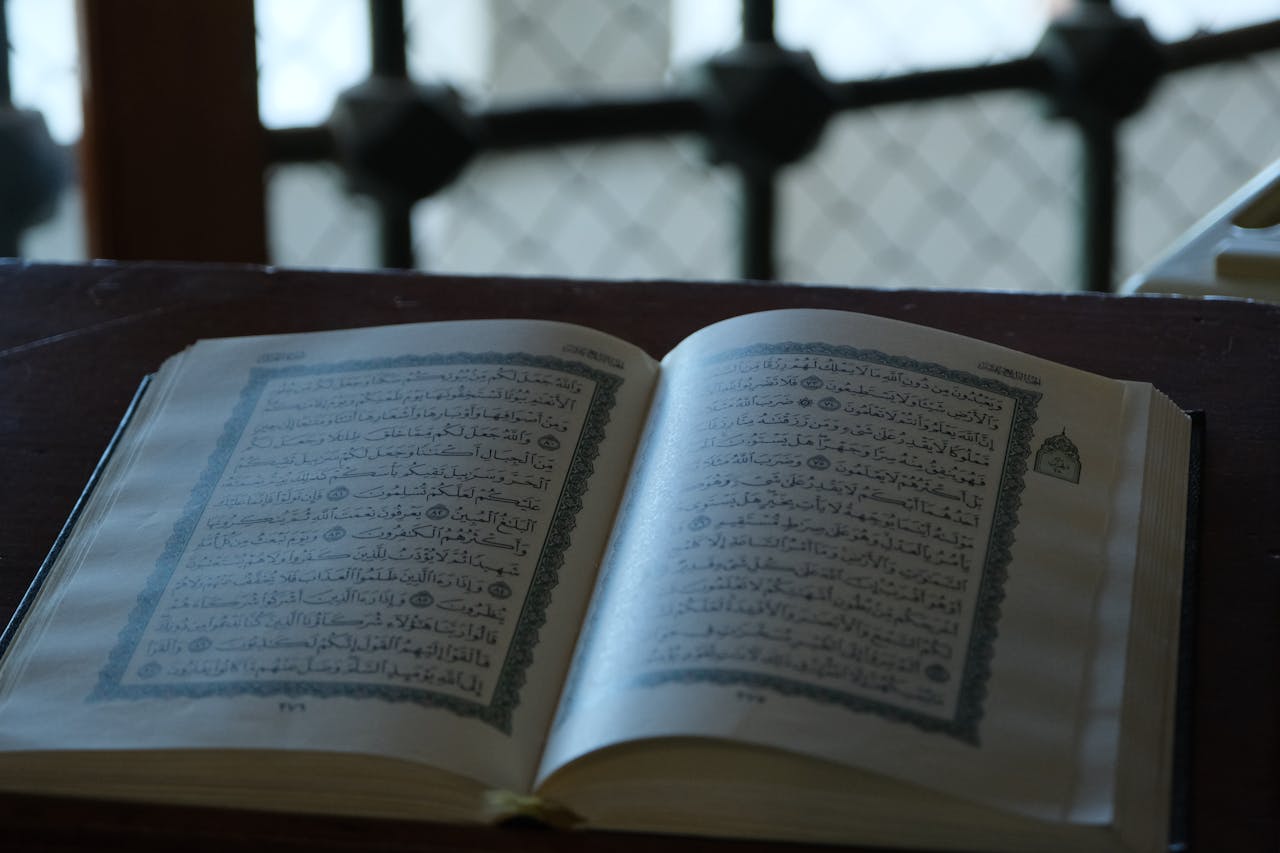 وَيَعْبُدُونَ مِن دُونِ ٱللَّهِ مَا لَا يَمْلِكُ لَهُمْ رِزْقًا مِّنَ
وَٱلْأَرْضِ شَيْـًٔا وَلَا يَسْتَطِيعُونَ ٧٣ فَلَا تَضْرِبُوا۟ لِلَّهِ
إِنَّ ٱللَّهَ يَعْلَمُ وَأَنتُمْ لَا تَعْلَمُونَ ٧٤ ۞ ضَرَبَ ٱللَّهُ مَثَلًا
مَّمْلُوكًا لَّا يَقْدِرُ عَلَىٰ شَىْءٍ وَمَن رَّزَقْنَـٰهُ مِنَّا رِزْقًا
فَهُوَ يُنفِقُ مِنْهُ سِرًّا وَجَهْرًا هَلْ يَسْتَوُۥنَ
بَلْ أَكْثَرُهُمْ لَا يَعْلَمُونَ ٧٥ وَضَرَبَ ٱللَّهُ مَثَلًا
أَحَدُهُمَآ أَبْكَمُ لَا يَقْدِرُ عَلَىٰ شَىْءٍ وَهُوَ
مَوْلَىٰهُ أَيْنَمَا يُوَجِّههُّ لَا يَأْتِ بِخَيْرٍ هَلْ يَسْتَوِى
يَأْمُرُ بِٱلْعَدْلِ وَهُوَ عَلَىٰ صِرَٰطٍ مُّسْتَقِيمٍ ٧٦
ٱلسَّمَـٰوَٰتِ وَٱلْأَرْضِ وَمَآ أَمْرُ ٱلسَّاعَةِ إِلَّا
أَوْ هُوَ أَقْرَبُ إِنَّ ٱللَّهَ عَلَىٰ كُلِّ شَىْءٍ قَدِيرٌ
أَخْرَجَكُم مِّنۢ بُطُونِ أُمَّهَـٰتِكُمْ لَا تَعْلَمُونَ
لَكُمُ ٱلسَّمْعَ وَٱلْأَبْصَـٰرَ وَٱلْأَفْـِٔدَةَ لَعَلَّكُمْ
أَلَمْ يَرَوْا۟ إِلَى ٱلطَّيْرِ مُسَخَّرَٰتٍ فِى جَوِّ
٢٧٥
وَٱللَّهُ جَعَلَ لَكُم مِّنۢ بُيُوتِكُمْ سَكَنًا وَجَعَلَ لَكُم
ٱلْأَنْعَـٰمِ بُيُوتًا تَسْتَخِفُّونَهَا يَوْمَ ظَعْنِكُمْ وَيَوْمَ
وَمِنْ أَصْوَافِهَا وَأَوْبَارِهَا وَأَشْعَارِهَآ أَثَـٰثًا وَمَتَـٰعًا إِلَىٰ حِينٍ
٨٠ وَٱللَّهُ جَعَلَ لَكُم مِّمَّا خَلَقَ ظِلَـٰلًا وَجَعَلَ لَكُم
مِّنَ ٱلْجِبَالِ أَكْنَـٰنًا وَجَعَلَ لَكُمْ سَرَٰبِيلَ تَقِيكُمُ
ٱلْحَرَّ وَسَرَٰبِيلَ تَقِيكُم بَأْسَكُمْ كَذَٰلِكَ يُتِمُّ نِعْمَتَهُۥ
عَلَيْكُمْ لَعَلَّكُمْ تُسْلِمُونَ ٨١ فَإِن تَوَلَّوْا۟ فَإِنَّمَا عَلَيْكَ
ٱلْبَلَـٰغُ ٱلْمُبِينُ ٨٢ يَعْرِفُونَ نِعْمَتَ ٱللَّهِ ثُمَّ يُنكِرُونَهَا
وَأَكْثَرُهُمُ ٱلْكَـٰفِرُونَ ٨٣ وَيَوْمَ نَبْعَثُ مِن كُلِّ أُمَّةٍ
شَهِيدًا ثُمَّ لَا يُؤْذَنُ لِلَّذِينَ كَفَرُوا۟ وَلَا هُمْ يُسْتَعْتَبُونَ
٨٤ وَإِذَا رَءَا ٱلَّذِينَ ظَلَمُوا۟ ٱلْعَذَابَ فَلَا يُخَفَّفُ عَنْهُمْ وَلَا هُمْ
يُنظَرُونَ ٨٥ وَإِذَا رَءَا ٱلَّذِينَ أَشْرَكُوا۟ شُرَكَآءَهُمْ
قَالُوا۟ رَبَّنَا هَـٰٓؤُلَآءِ شُرَكَآؤُنَا ٱلَّذِينَ كُنَّا نَدْعُوا۟ مِن دُونِكَ
فَأَلْقَوْا۟ إِلَيْهِمُ ٱلْقَوْلَ إِنَّكُمْ لَكَـٰذِبُونَ ٨٦ وَأَلْقَوْا۟
إِلَى ٱللَّهِ يَوْمَئِذٍ ٱلسَّلَمَ وَضَلَّ عَنْهُم مَّا كَانُوا۟ يَفْتَرُونَ ٨٧
٢٧٦